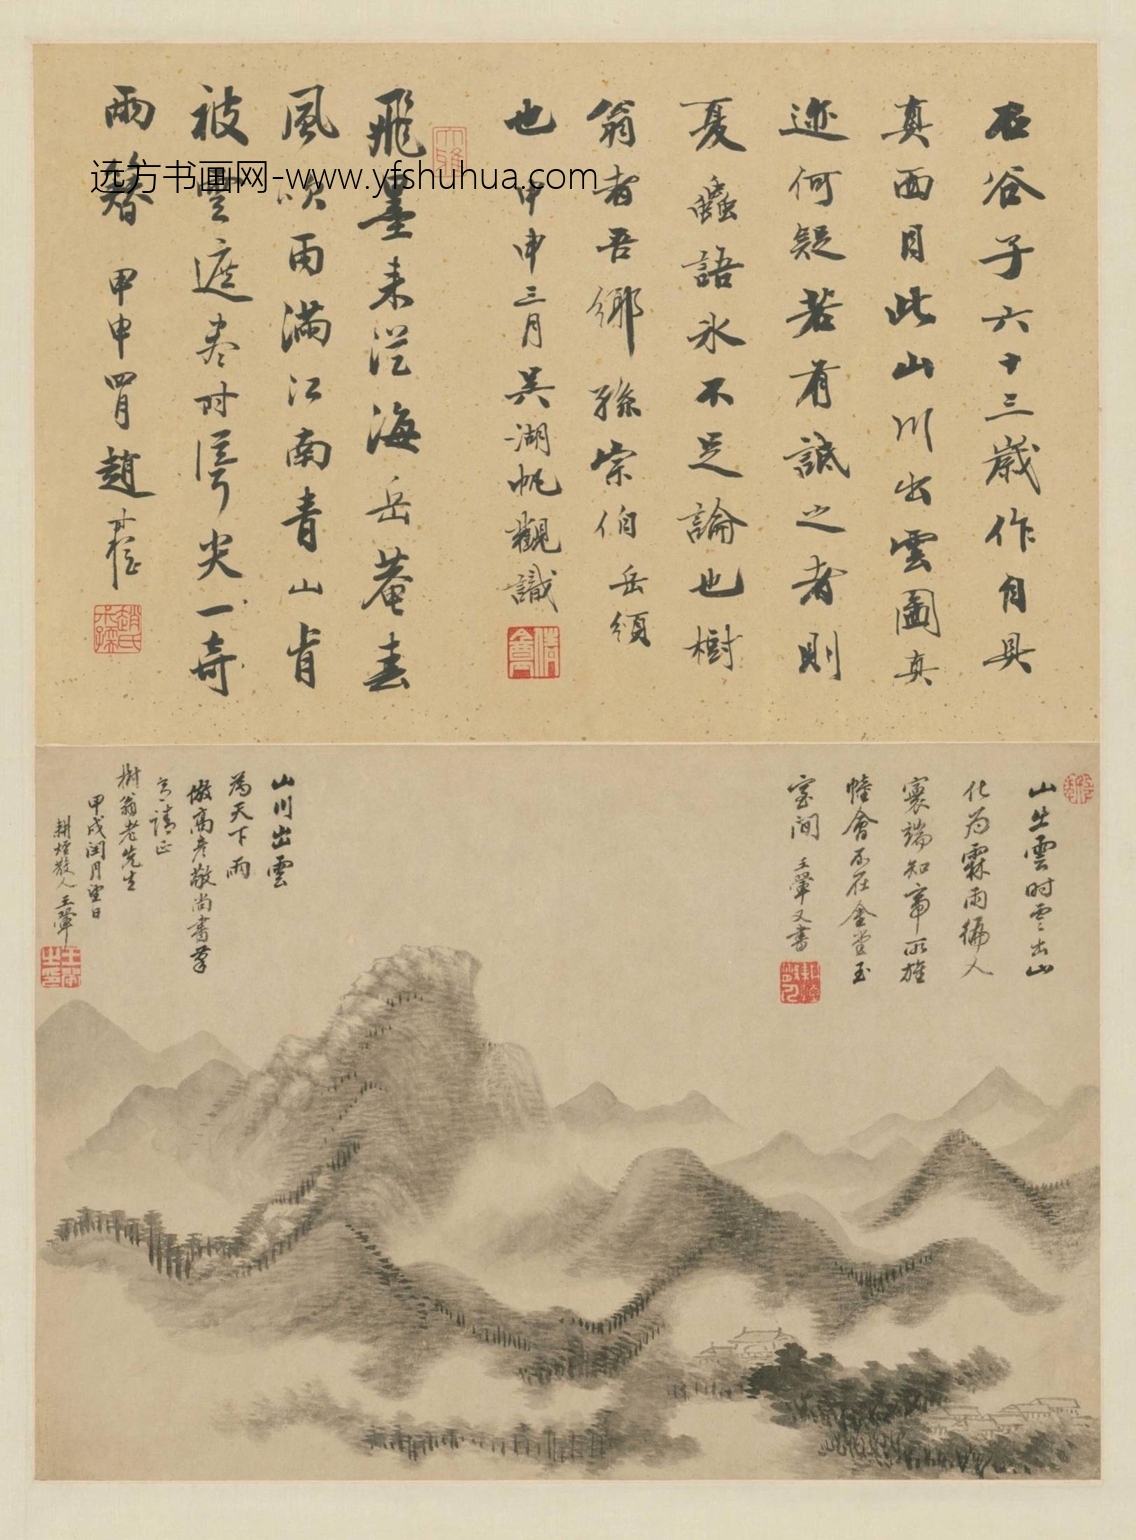 石谷子六十三歲作自具
真面目此山川出雲圖真
迹何疑若有詆之者則
夏蟲語冰不足論也樹
翁者吾鄉孫崇伯岳頒
也甲申三月吳湖帆觀識
飛墨來從海岳菴春
風吹雨滿江南青山肯
被雲遮盡時露尖一奇
兩簪甲申四月趙
远方书画网-www.yfshuhua.com
山生雲時雲出山
化為霖雨徧人
寰端知帝所旌
幢會不在金堂玉
室間王翬又書
山川出雲
為天下雨
倣高彥敬尚書筆
請正
樹翁老先生
甲戌閏月望日
耕煙散人王翬